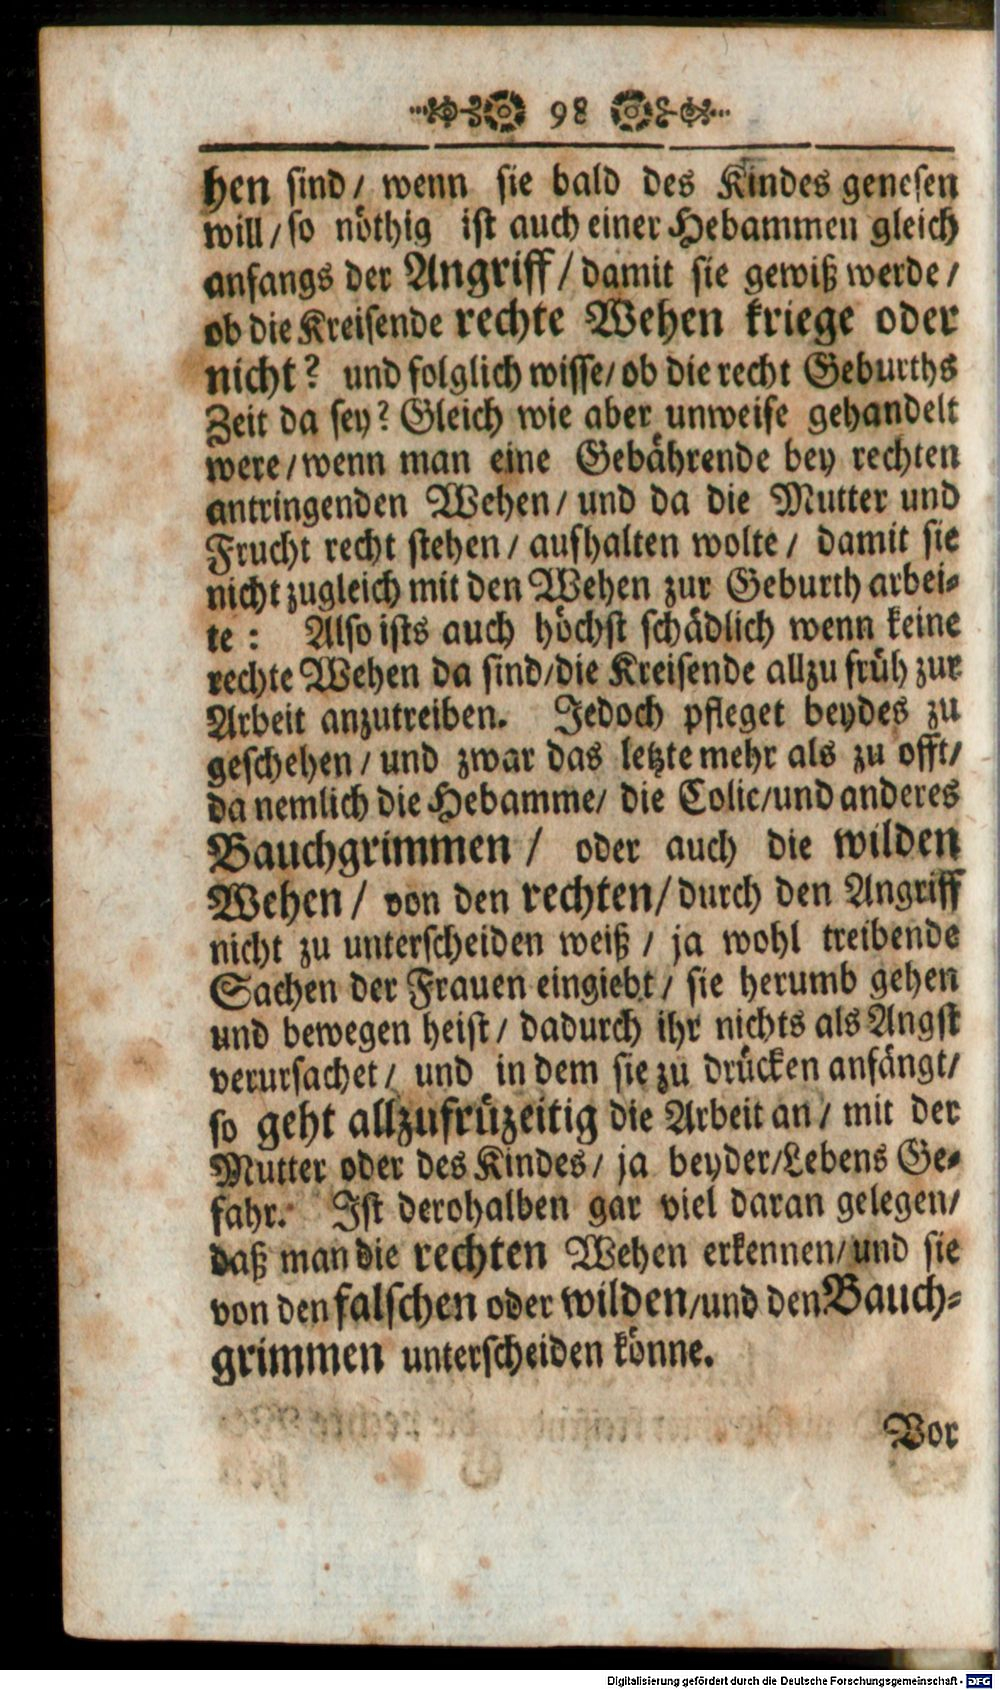 98
hen sind/ wenn sie bald des Kindes genesen
will/ so nöthig ist auch einer Hebammen gleich
anfangs der Angriff/ damit sie gewiß werde/
ob die Kreisende rechte Wehen kriege oder
nicht? und folglich wisse/ ob die recht Geburths
Zeit da sey? Gleich wie aber unweise gehandelt
were/ wenn man eine Gebährende bey rechten
antringenden Wehen/ und da die Mutter und
Frucht recht stehen/ aufhalten wolte/ damit sie
nicht zugleich mit den Wehen zur Geburth arbei-
te: Also ists auch höchst schädlich wenn keine
rechte Wehen da sind/ die Kreisende allzu früh zur
Arbeit anzutreiben. Jedoch pfleget beydes zu
geschehen/ und zwar das letzte mehr als zu offt/
da nemlich die Hebamme/ die Colic/ und anderes
Bauchgrimmen/ oder auch die wilden
Wehen/ von den rechten/ durch den Angriff
nicht zu unterscheiden weiß/ ja wohl treibende
Sachen der Frauen eingiebt/ sie herumb gehen
und bewegen heist/ dadurch ihr nichts als Angst
verursachet/ und in dem sie zu drücken anfängt/
so geht allzufrüzeitig die Arbeit an/ mit der
Mutter oder des Kindes/ ja beyder/ Lebens Ge-
fahr. Ist derohalben gar viel daran gelegen/
daß man die rechten Wehen erkennen/ und sie
von den falschen oder wilden/ und den Bauch-
grimmen unterscheiden könne.
Vor
Digitalisierung gefördert durch die Deutsche Forschungsgemeinschaft - DFG